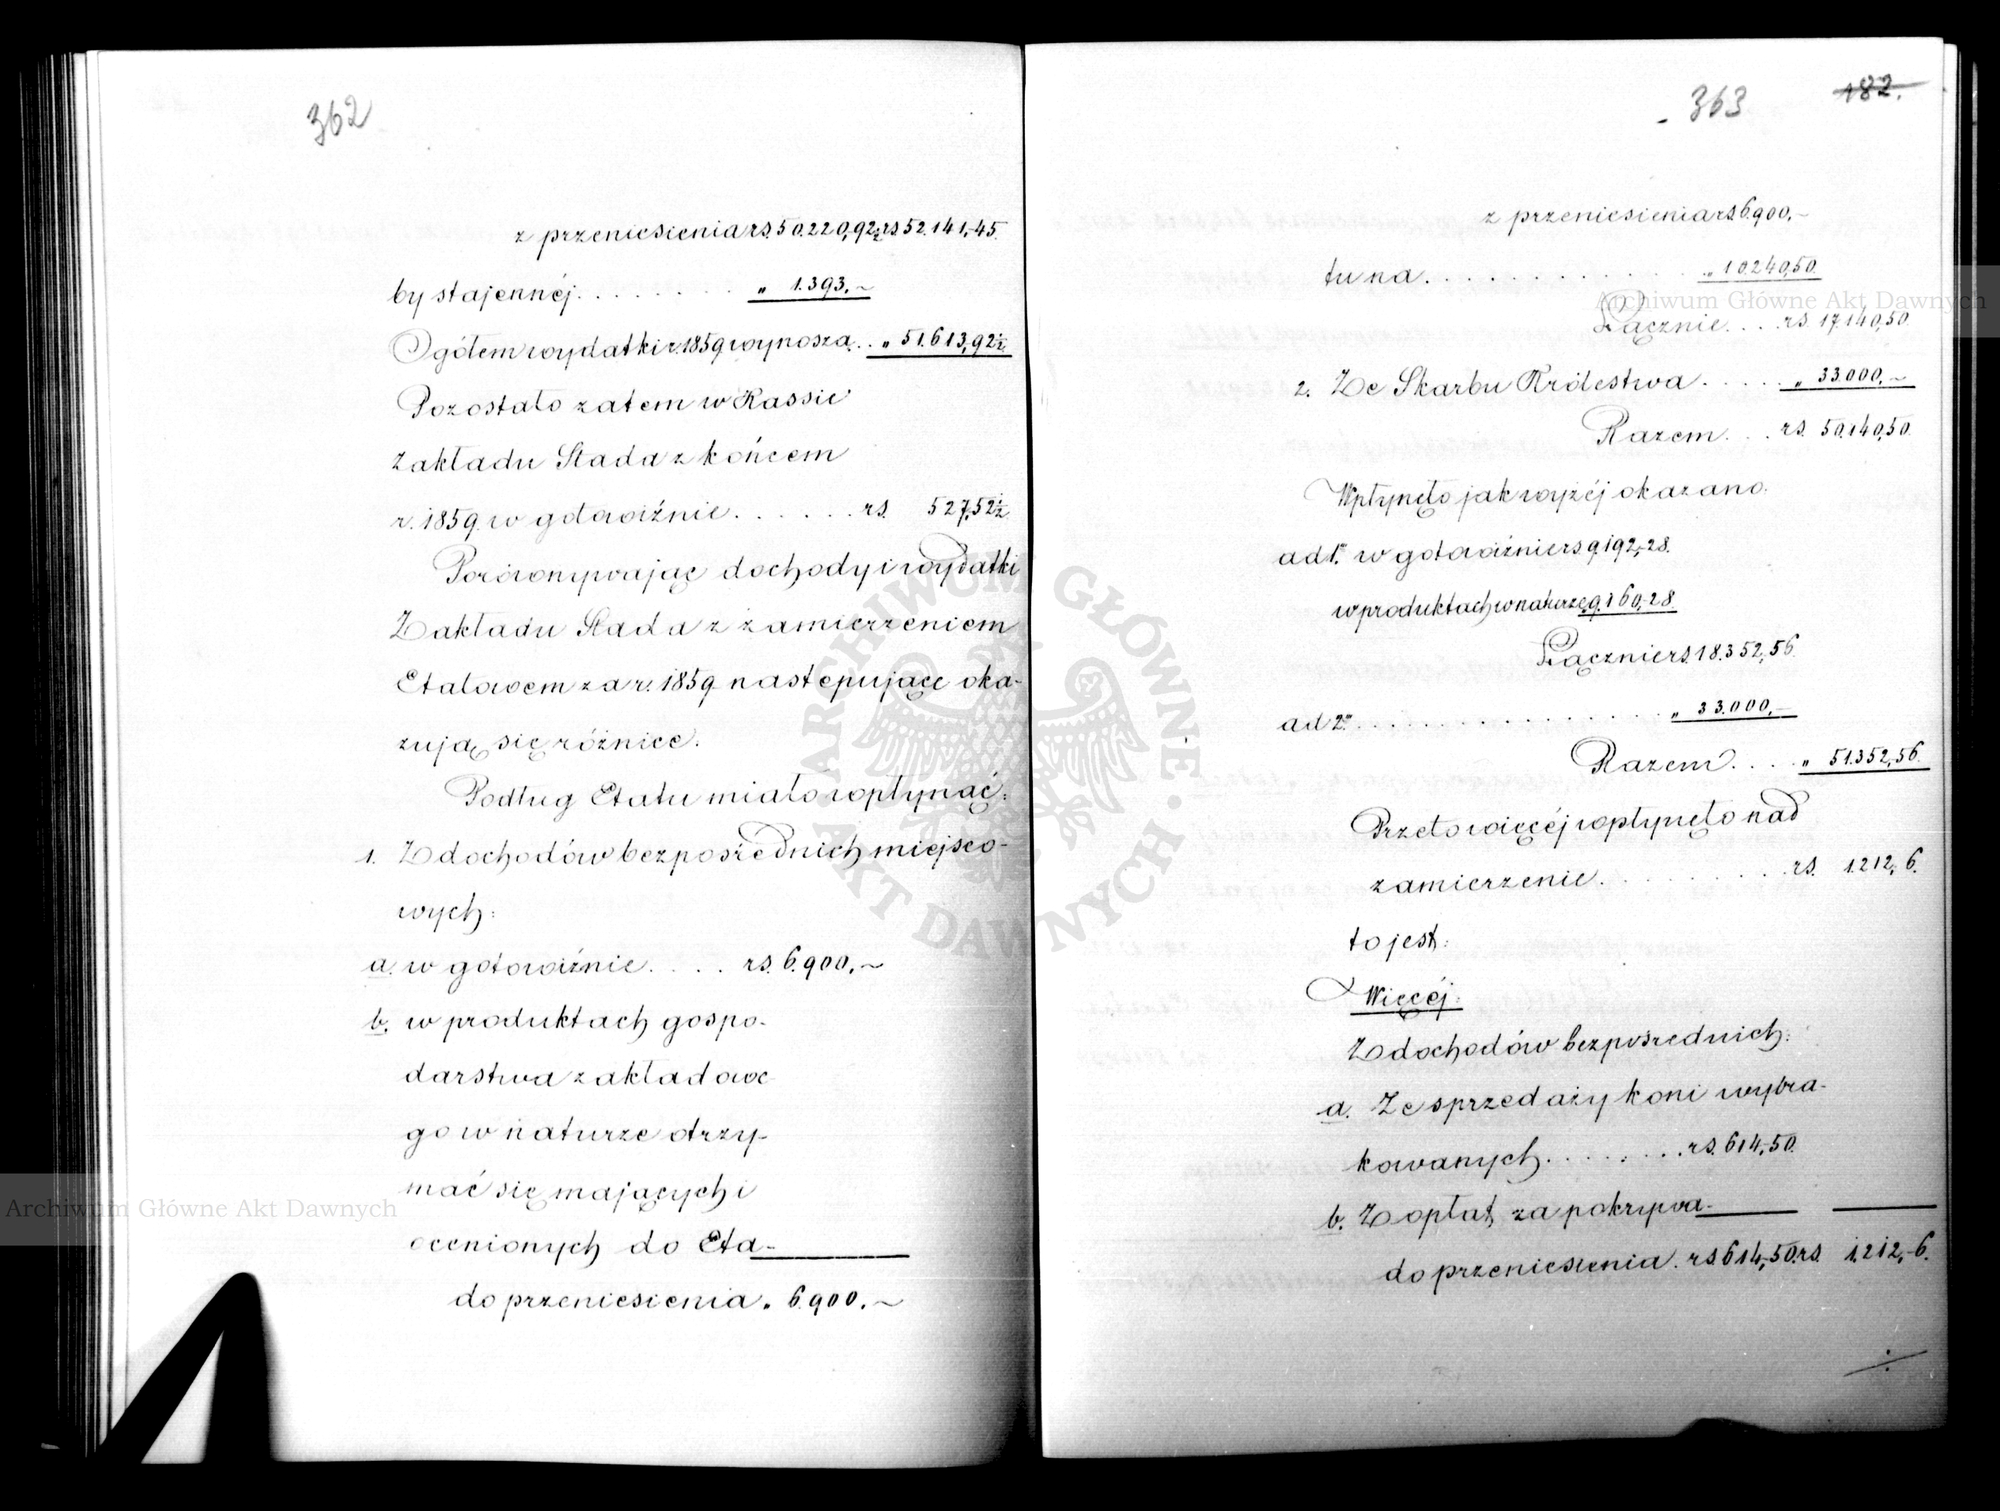 362
z przeniesienia rs. 50.220,92½ rs. 52.141,45.
by stajennéj. . . . . . . . „ 1.393.~
Ogółem wydatki r. 1859 wynoszą. . „ 51.613,92½
Pozostało zatem w Kassie
Zakładu Stada z końcem
r. 1859. w gotowiźnie. . . . . . rs. 527,52½
Porównywając dochody i wydatki
Zakładu Stada z zamierzeniem
Etatowem za r. 1859 następujące oka-
zują się różnice.
Podług Etatu miało wpłynąć:
1. Z dochodów bezpośrednich miejsco-
wych:
a. w gotowiźnie. . . . rs. 6.900.~
b. w produktach gospo-
darstwa zakładowe-
go w naturze otrzy-
mać się mających i
ocenionych do Eta-
do przeniesienia „ 6.900.~
363 182.
z przeniesienia rs. 6.900.~
tu na. . . . . . . . . . . . . . „ 10.240,50.
Łącznie. . . . rs. 17.140,50.
2. Ze Skarbu Królestwa. . . . . „ 33.000,~
Razem. . . rs. 50.140,50.
Wpłynęło jak wyżéj okazano.
ad 1º w gotowiźnie rs 9.192,28.
w produktach w naturze „ 9.160,28
Łącznie rs. 18.352,56.
ad 2º. . . . . . . . . . . . . . . . „ 33.000,—
Razem. . . . „ 51.352,56.
Przeto więcéj wpłynęło nad
zamierzenie. . . . . . . . . rs. 1.212, 6.
to jest:
Więcéj:
Z dochodów bezpośrednich:
a. Ze sprzedaży koni wybra-
kowanych. . . . . . . . rs. 614,50.
b. Z opłat za pokrywa-
do przeniesienia. rs. 614,50. rs. 1.212,6.
Archiwum Główne Akt Dawnych
Archiwum Główne Akt Dawnych
ARCHIWUM GŁÓWNE AKT DAWNYCH